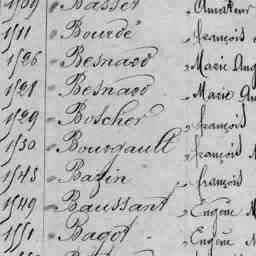 1509 Basset Amateur
1511 Bourdé françois
1526 Besnard Marie Ang
1528 Besnard Marie An
1529 Boscher françois
1530 Bourgault françois M
1543 Bazin françois
1549 Baussant Eugène M
1551 Bagot Eugène M